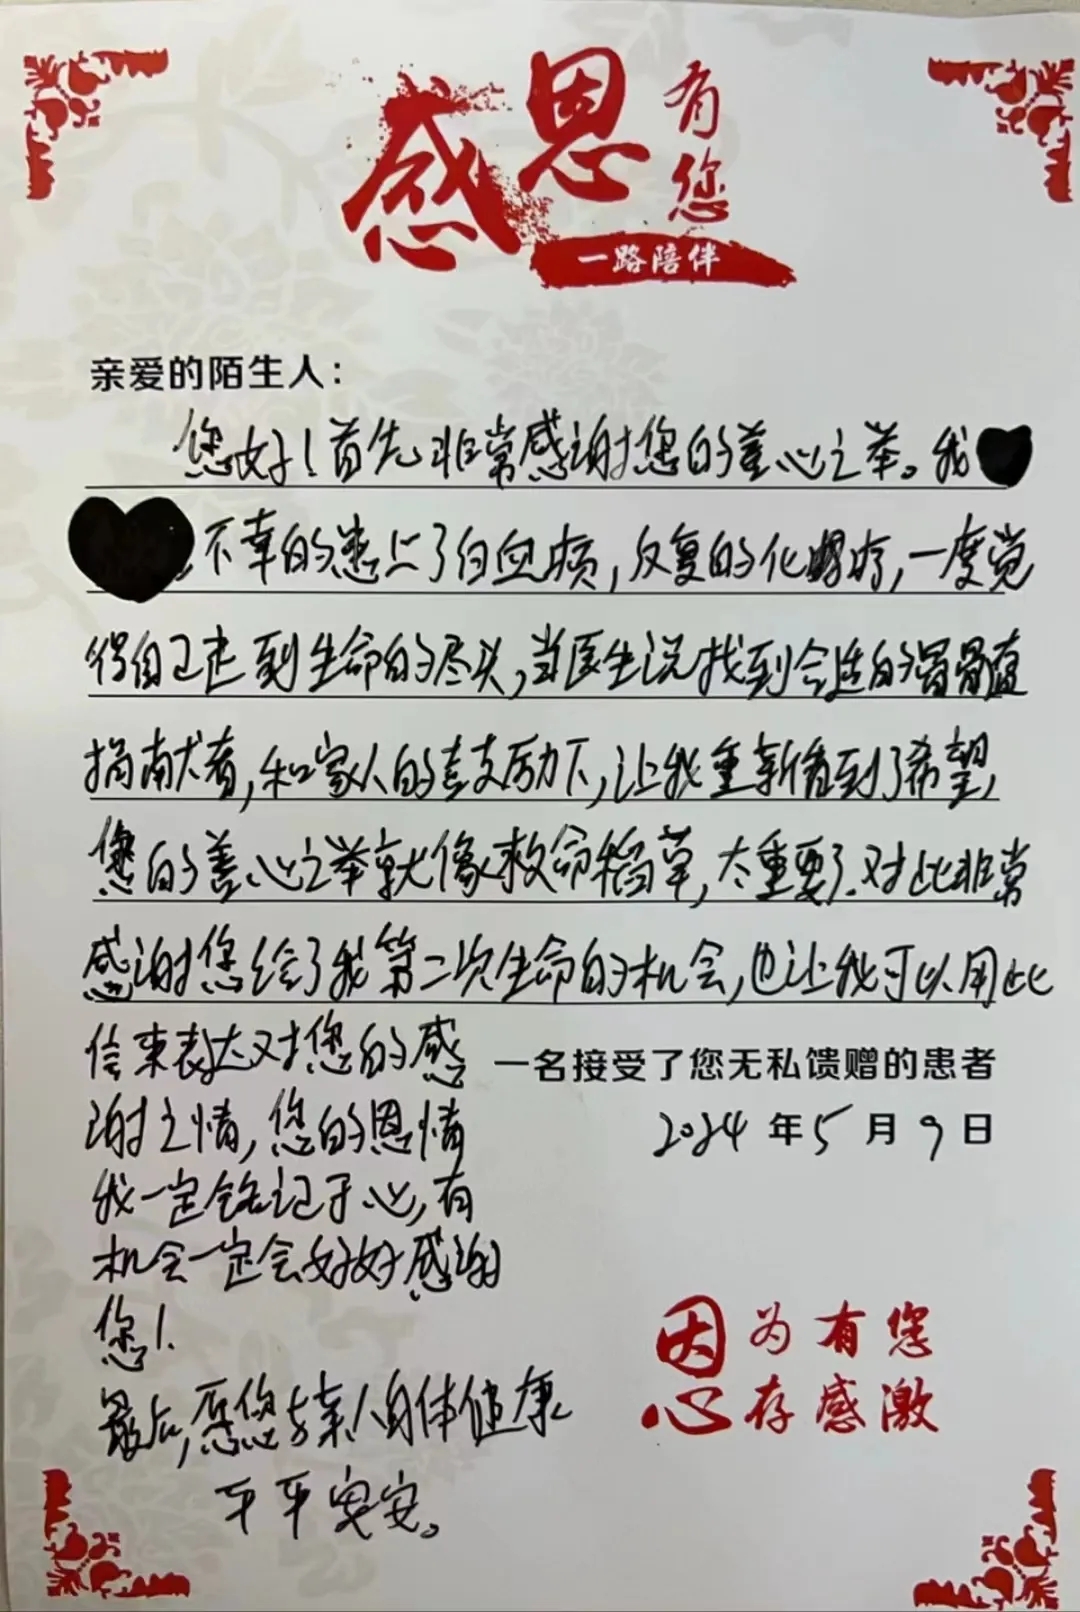 感恩有您
一路陪伴
亲爱的陌生人：
您好！首先非常感谢您的善心之举。我
不幸的患上了白血病，反复的化疗，一度觉
得自己走到生命的尽头，当医生说找到合适的骨髓
捐献者，和家人的鼓励下，让我重新看到了希望，
您的善心之举就像救命稻草，太重要了.对此非常
感谢您给了我第二次生命的机会，也让我可以用此
信来表达对您的感
谢之情，您的恩情
我一定铭记于心，有
机会一定会好好感谢
您！
最后，愿您与亲人身体健康
平平安安。
一名接受了您无私馈赠的患者
2024年5月9日
因为有您
心存感激